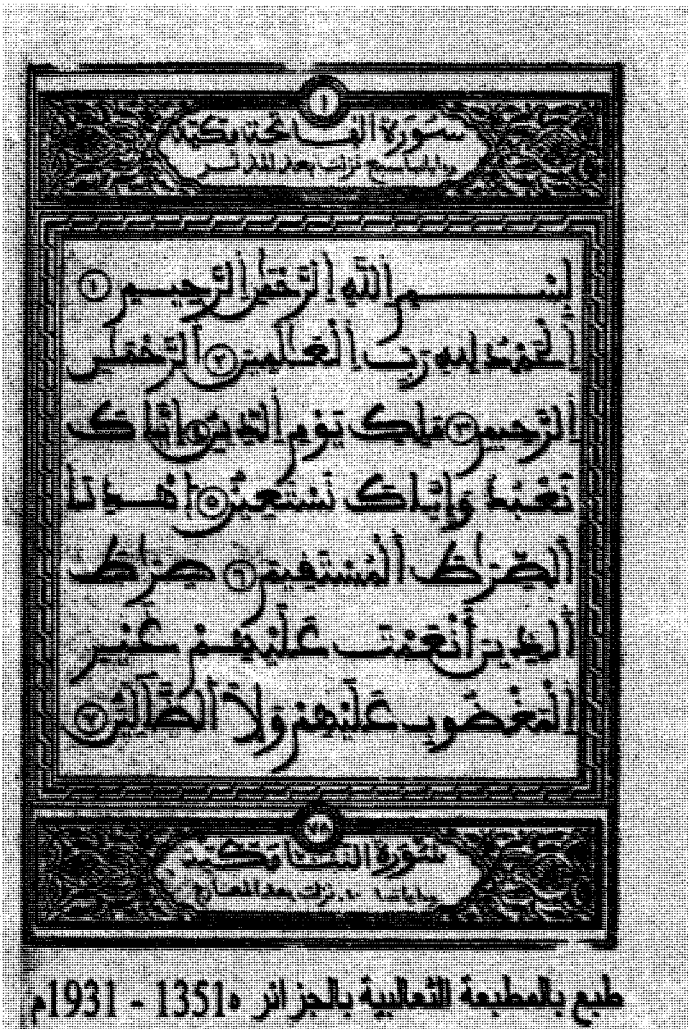 ١
سورة الفاتحة مكية
وءاياتها سبع نزلت بعد المدثر
بِسْمِ اِللَّهِ اِلرَّحْمَٰنِ اِلرَّحِيمِ ١
اِلْحَمْدُ لِلهِ رَبِّ اِلْعَٰلَمِينَ ٢ اَلرَّحْمَٰنِ
اِلرَّحِيمِ ٣ مَلِكِ يَوْمِ اِلدِّينِ ٤ إِيَّاكَ
نَعْبُدُ وَإِيَّاكَ نَسْتَعِينُ ٥ اَهْدِنَا
اَلصِّرَٰطَ اَلْمُسْتَقِيمَ ٦ صِرَٰطَ
اَلذِينَ أَنْعَمْتَ عَلَيْهِمْ غَيْرِ
اِلْمَغْضُوبِ عَلَيْهِمْ وَلَا اَلضَّآلِّينَ ٧
٧٨
سورة النبإ مكية
نزلت بعد المعارج
طبع بالمطبعة الثعالبية بالجزائر 1351ه - 1931م